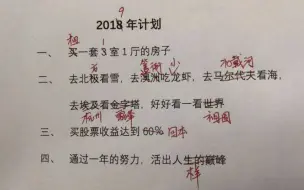 9
2018 年计划
租 1
一、 买一套 3 室 1 厅的房子
北 簋街 小 北戴河
二、 去北极看雪，去澳洲吃龙虾，去马尔代夫看海，
去埃及看金字塔，好好看一看世界
杭州 祖国
三、 买股票收益达到 60% 回本
四、 通过一年的努力，活出人生的巅峰
样